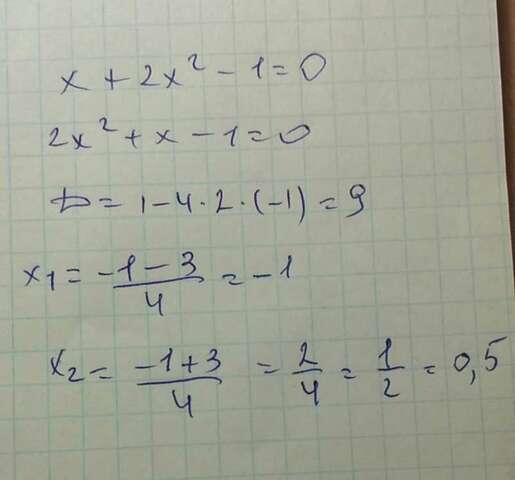 x + 2x² - 1 = 0
2x² + x - 1 = 0
D = 1 - 4 · 2 · (-1) = 9
x₁ = (-1 - 3)/4 = -1
x₂ = (-1 + 3)/4 = 2/4 = 1/2 = 0,5